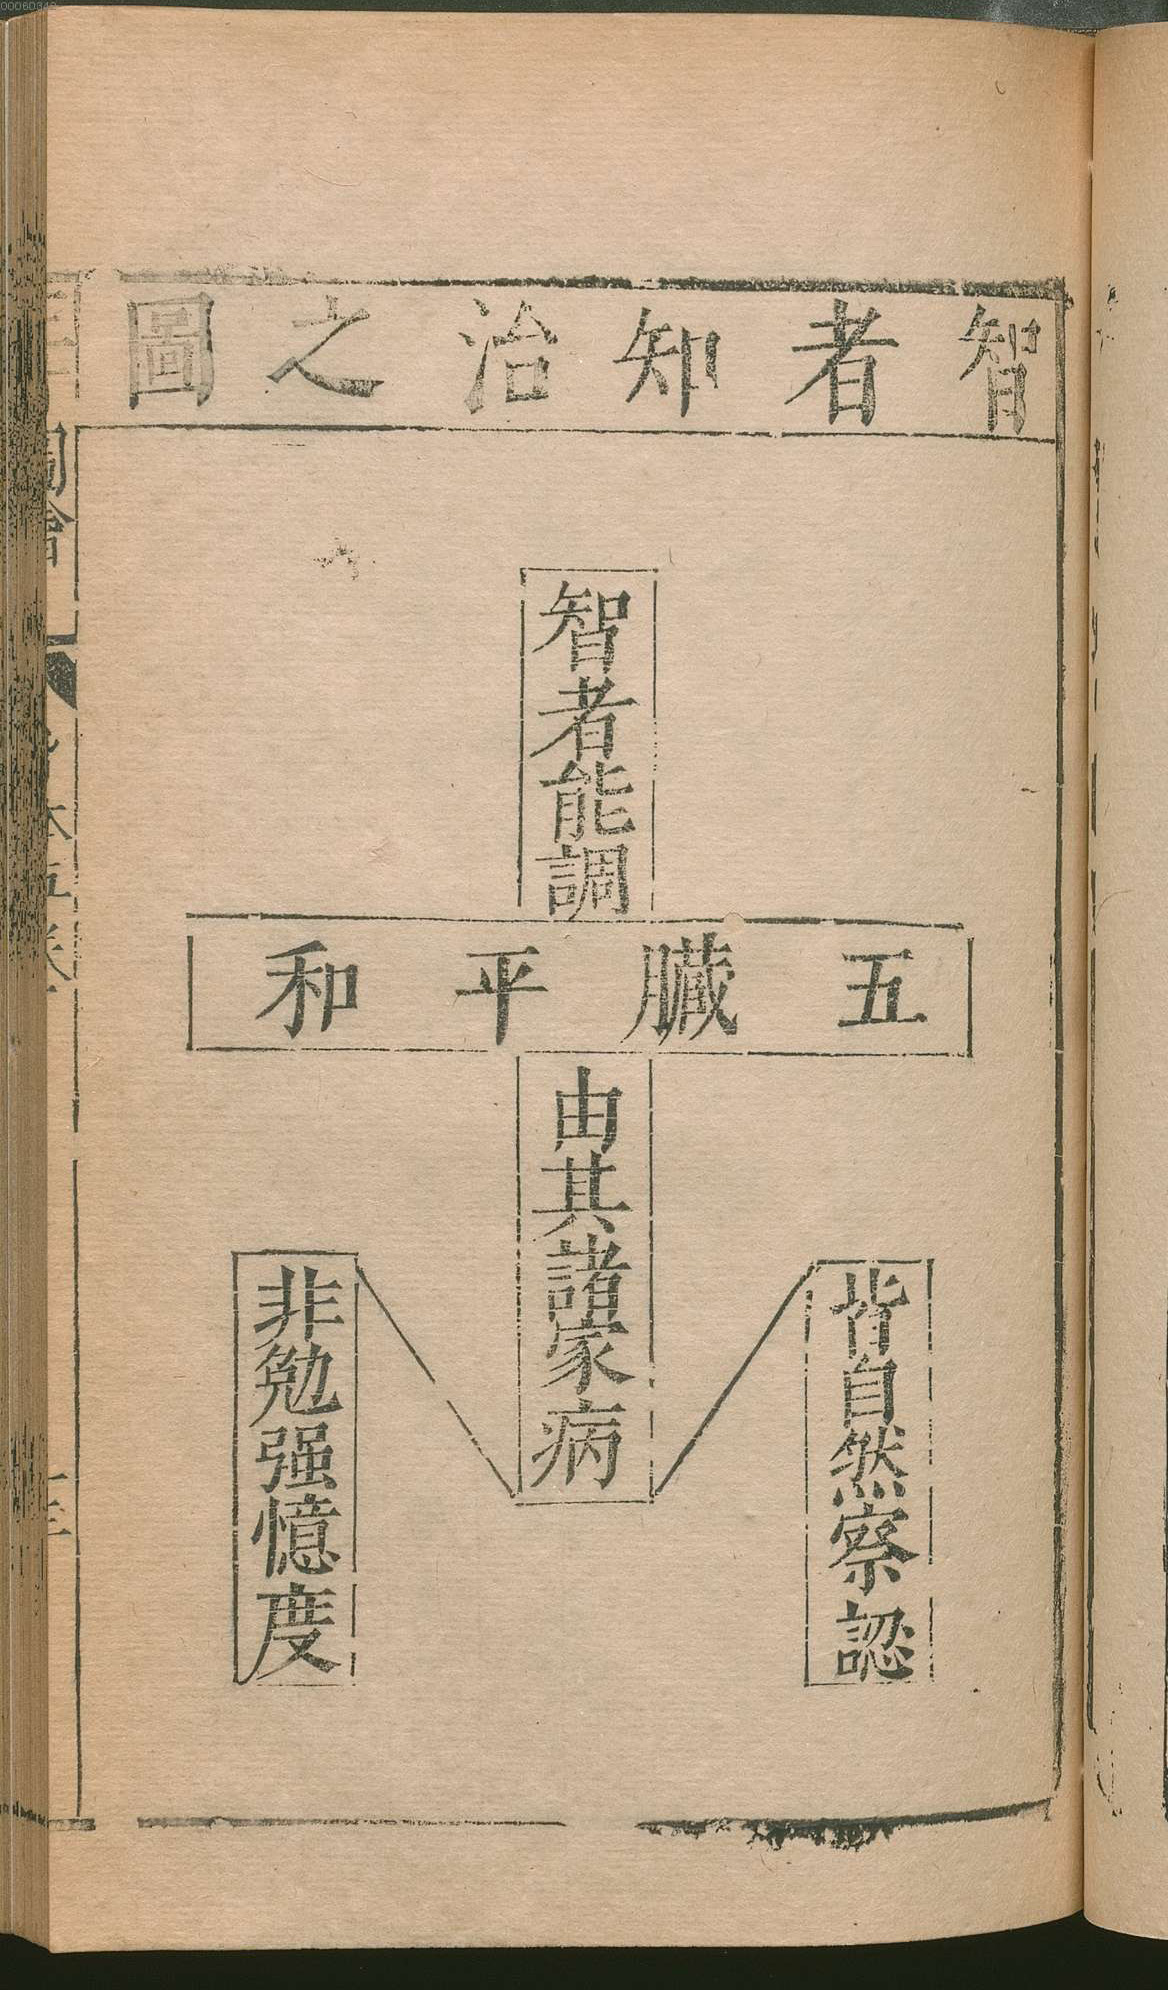 智者知治之圖
智者能調
五臟平和
由其諸家病
背自然察認
非勉强憶度
00060342